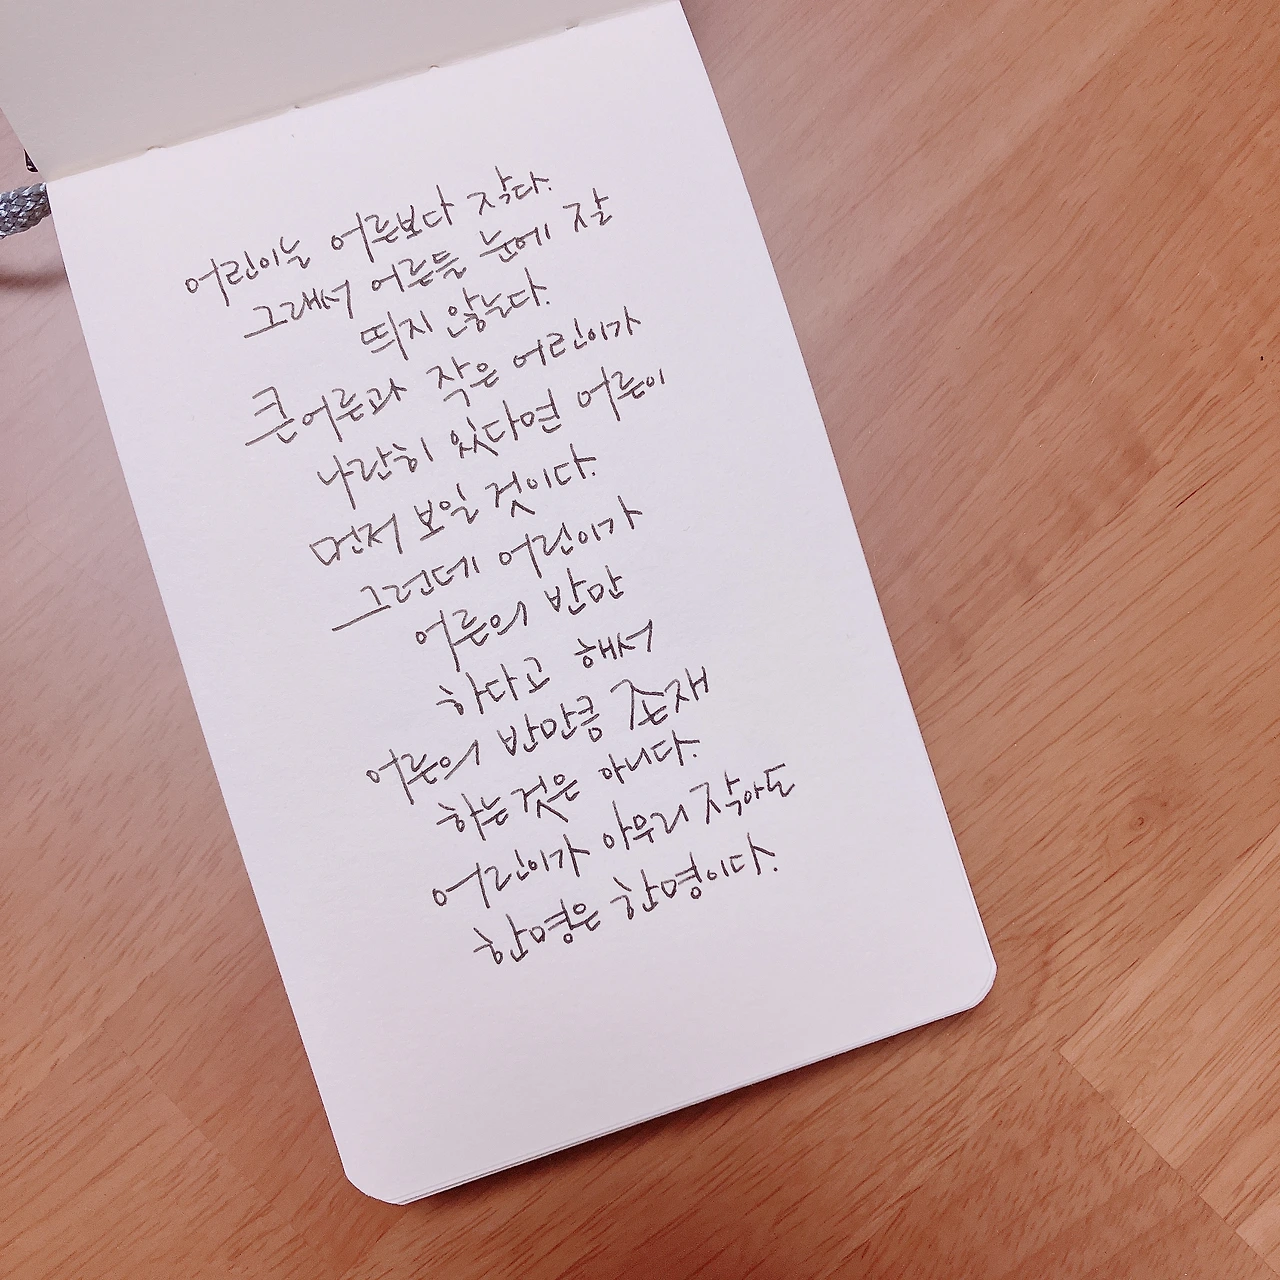 어린이는 어른보다 작다.
그래서 어른들 눈에 잘
띄지 않는다.
큰어른과 작은 어린이가
나란히 있다면 어른이
먼저 보일 것이다.
그런데 어린이가
어른의 반만
하다고 해서
어른의 반만큼 존재
하는것은 아니다.
어린이가 아무리 작아도
한명은 한명이다.